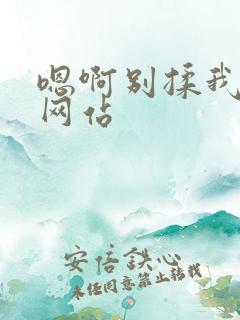 嗯啊别揉我
网站
安信铁心
未经同意禁止转载